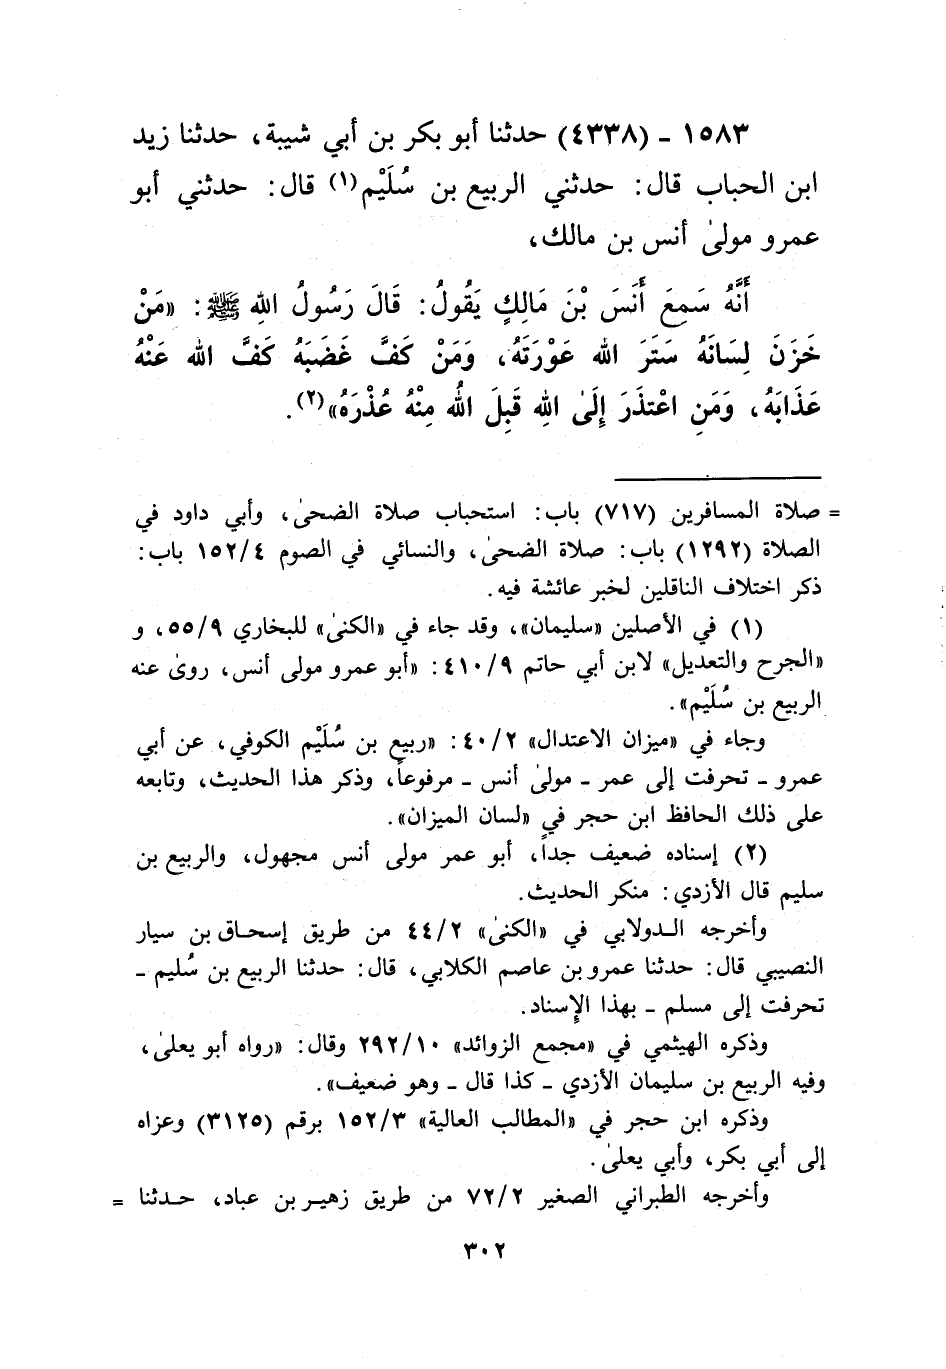 ١٥٨٣ - (٤٣٣٨) حدثنا أبو بكر بن أبي شيبة، حدثنا زيد
ابن الحباب قال: حدثني الربيع بن سُلَيْم(١) قال: حدثني أبو
عمرو مولىٰ أنس بن مالك،
أَنَّهُ سَمِعَ أَنَسَ بْنَ مَالِكٍ يَقُولُ: قَالَ رَسُولُ اللهِ ﷺ: «مَنْ
خَزَنَ لِسَانَهُ سَتَرَ الله عَوْرَتَهُ، وَمَنْ كَفَّ غَضَبَهُ كَفَّ الله عَنْهُ
عَذَابَهُ، وَمَنِ اعْتذَرَ إِلَىٰ اللهِ قَبِلَ اللهُ مِنْهُ عُذْرَهُ»(٢).
= صلاة المسافرين (٧١٧) باب: استحباب صلاة الضحىٰ، وأبي داود في
الصلاة (١٢٩٢) باب: صلاة الضحىٰ، والنسائي في الصوم ١٥٢/٤ باب:
ذكر اختلاف الناقلين لخبر عائشة فيه.
(١) في الأصلين «سليمان»، وقد جاء في «الكنىٰ» للبخاري ٥٥/٩، و
«الجرح والتعديل» لابن أبي حاتم ٤١٠/٩: «أبو عمرو مولى أنس، روىٰ عنه
الربيع بن سُلَيْم».
وجاء في «ميزان الاعتدال» ٤٠/٢: «ربيع بن سُلَيْم الكوفي، عن أبي
عمرو - تحرفت إلى عمر - مولىٰ أنس - مرفوعاً، وذكر هذا الحديث، وتابعه
على ذلك الحافظ ابن حجر في «لسان الميزان».
(٢) إسناده ضعيف جداً، أبو عمر مولى أنس مجهول، والربيع بن
سليم قال الأزدي: منكر الحديث.
وأخرجه الدولابي في «الكنىٰ» ٤٤/٢ من طريق إسحاق بن سيار
النصيبي قال: حدثنا عمرو بن عاصم الكلابي، قال: حدثنا الربيع بن سُليم -
تحرفت إلى مسلم - بهذا الإسناد.
وذكره الهيثمي في «مجمع الزوائد» ٢٩٢/١٠ وقال: «رواه أبو يعلىٰ،
وفيه الربيع بن سليمان الأزدي - كذا قال - وهو ضعيف».
وذكره ابن حجر في «المطالب العالية» ١٥٢/٣ برقم (٣١٢٥) وعزاه
إلى أبي بكر، وأبي يعلىٰ.
وأخرجه الطبراني الصغير ٧٢/٢ من طريق زهير بن عباد، حدثنا =
٣٠٢